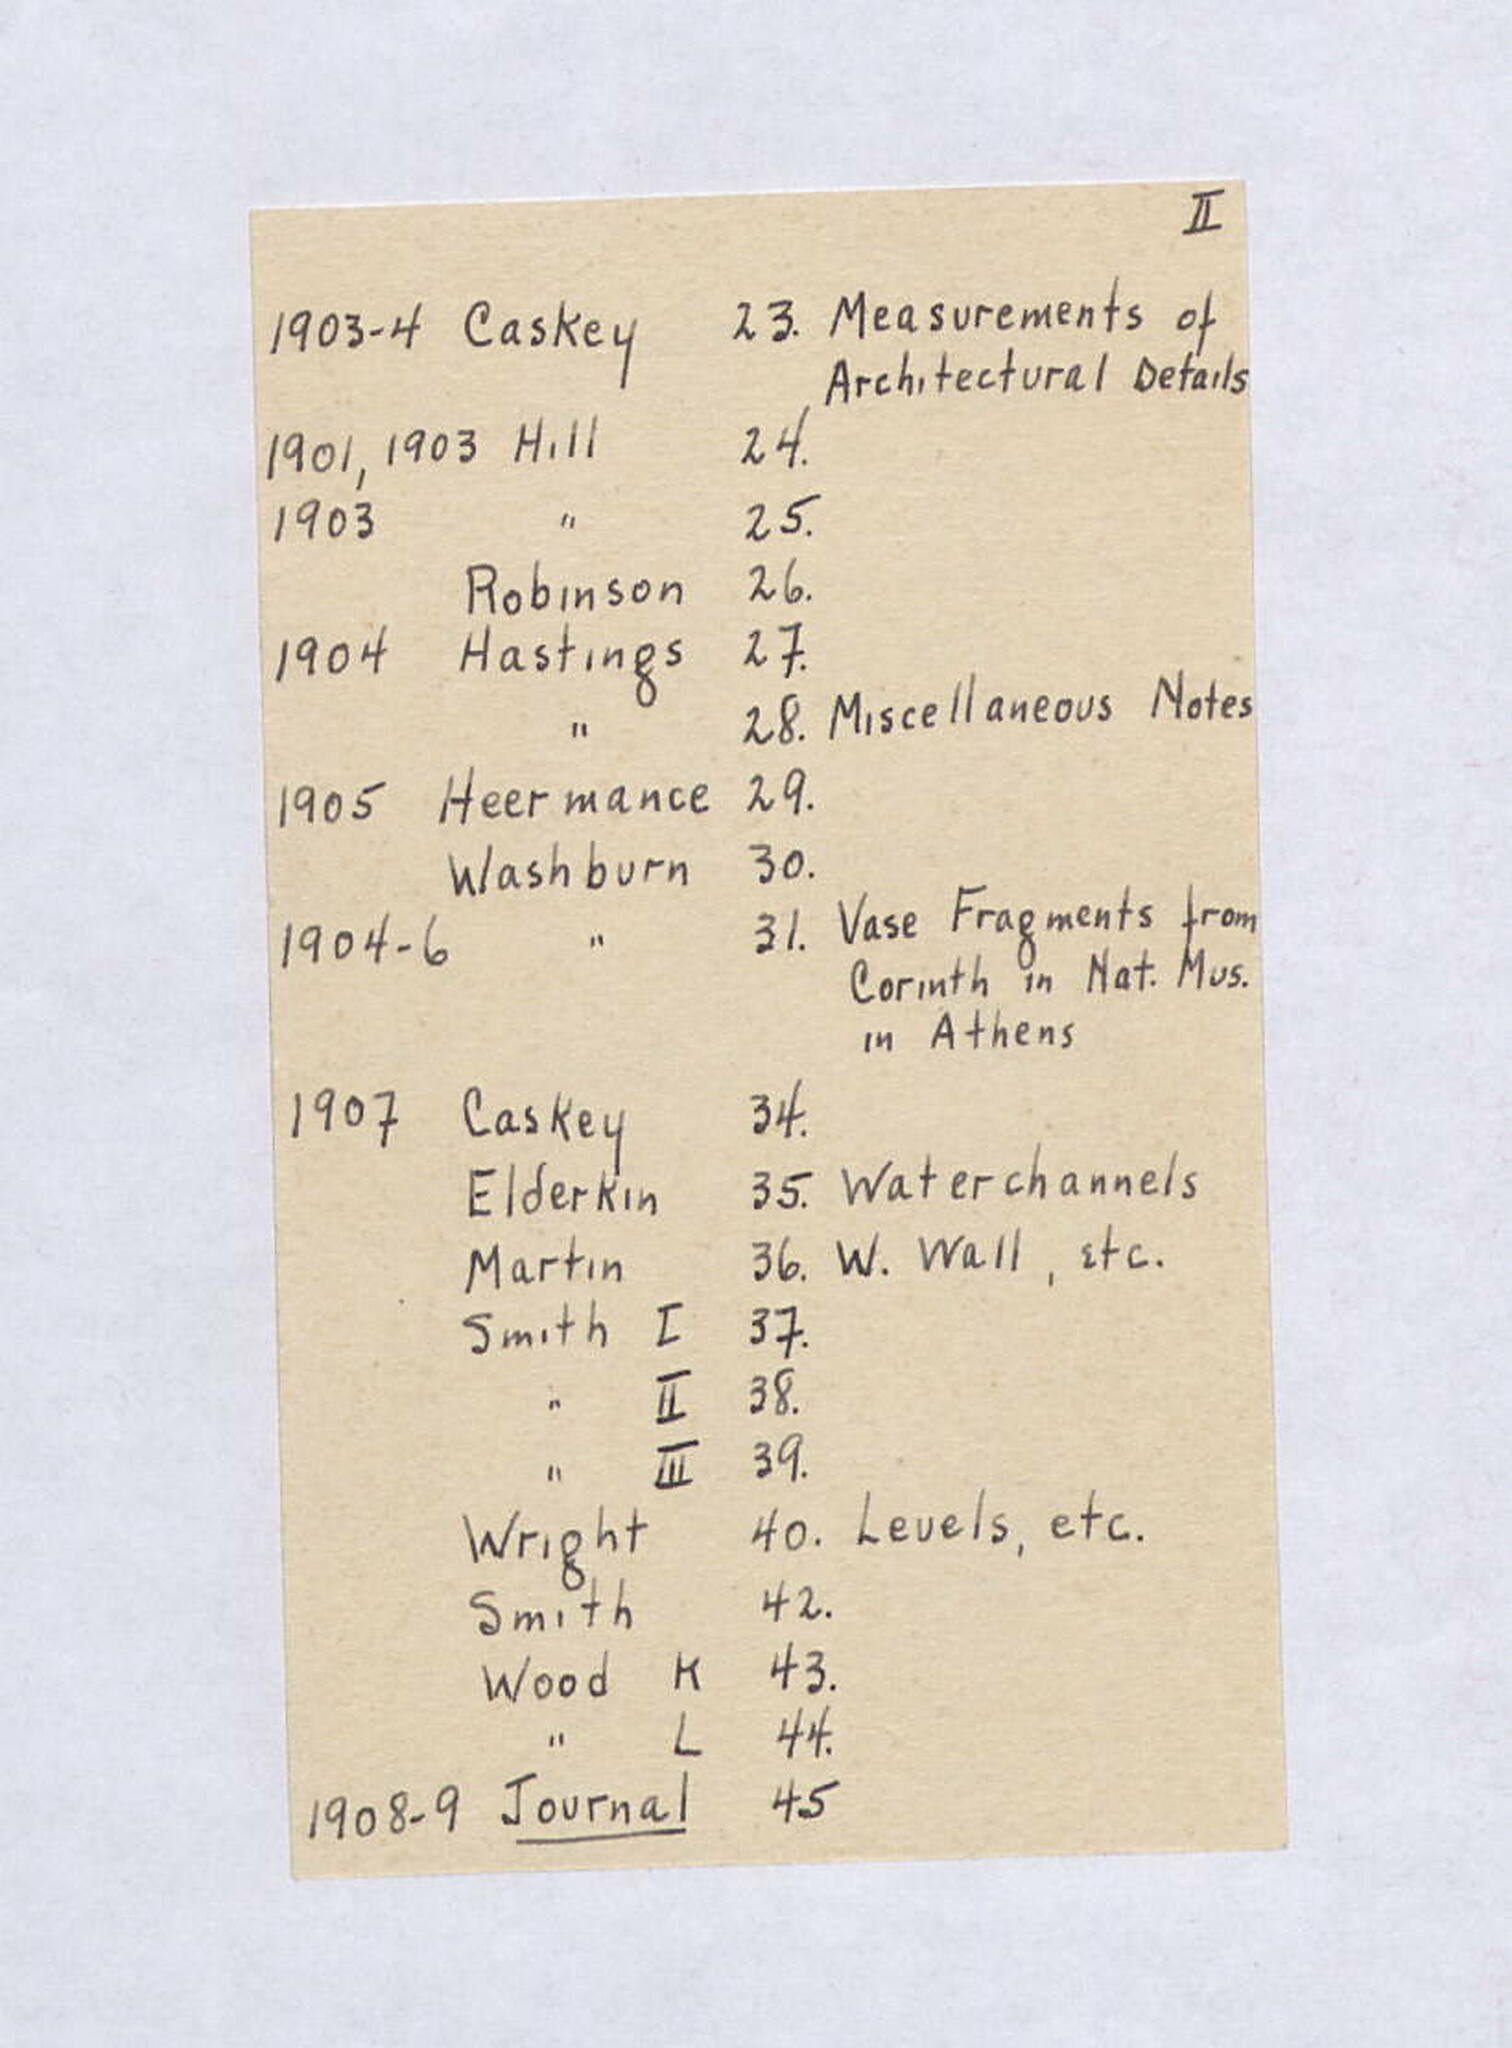 II
1903-4 Caskey 23. Measurements of
Architectural Details
1901, 1903 Hill 24.
1903 " 25.
Robinson 26.
1904 Hastings 27.
" 28. Miscellaneous Notes
1905 Heermance 29.
Washburn 30.
1904-6 " 31. Vase Fragments from
Corinth in Nat. Mus.
in Athens
1907 Caskey 34.
Elderkin 35. Waterchannels
Martin 36. W. Wall, etc.
Smith I 37.
" II 38.
" III 39.
Wright 40. Levels, etc.
Smith 42.
Wood K 43.
" L 44.
1908-9 Journal 45